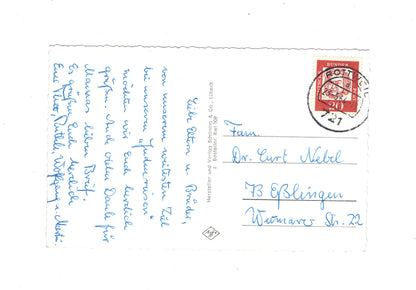 Liebe Eltern u. Brüder,
von unserem weitesten Ziel
bei unseren "Indienreisen"
möchten wir Euch herzlich
grüßen. Auch vielen Dank für
Mamas lieben Brief.
Es grüßen Euch herzlich
Eure
Wolfgang u.
Hersteller und Verlag Schöning & Co., Lübeck
DEUTSCHE BUNDESPOST
20
ROTTWEIL
721
Fam.
Dr. Curt Nebel
73 Eßlingen
Weimarer Str. 22